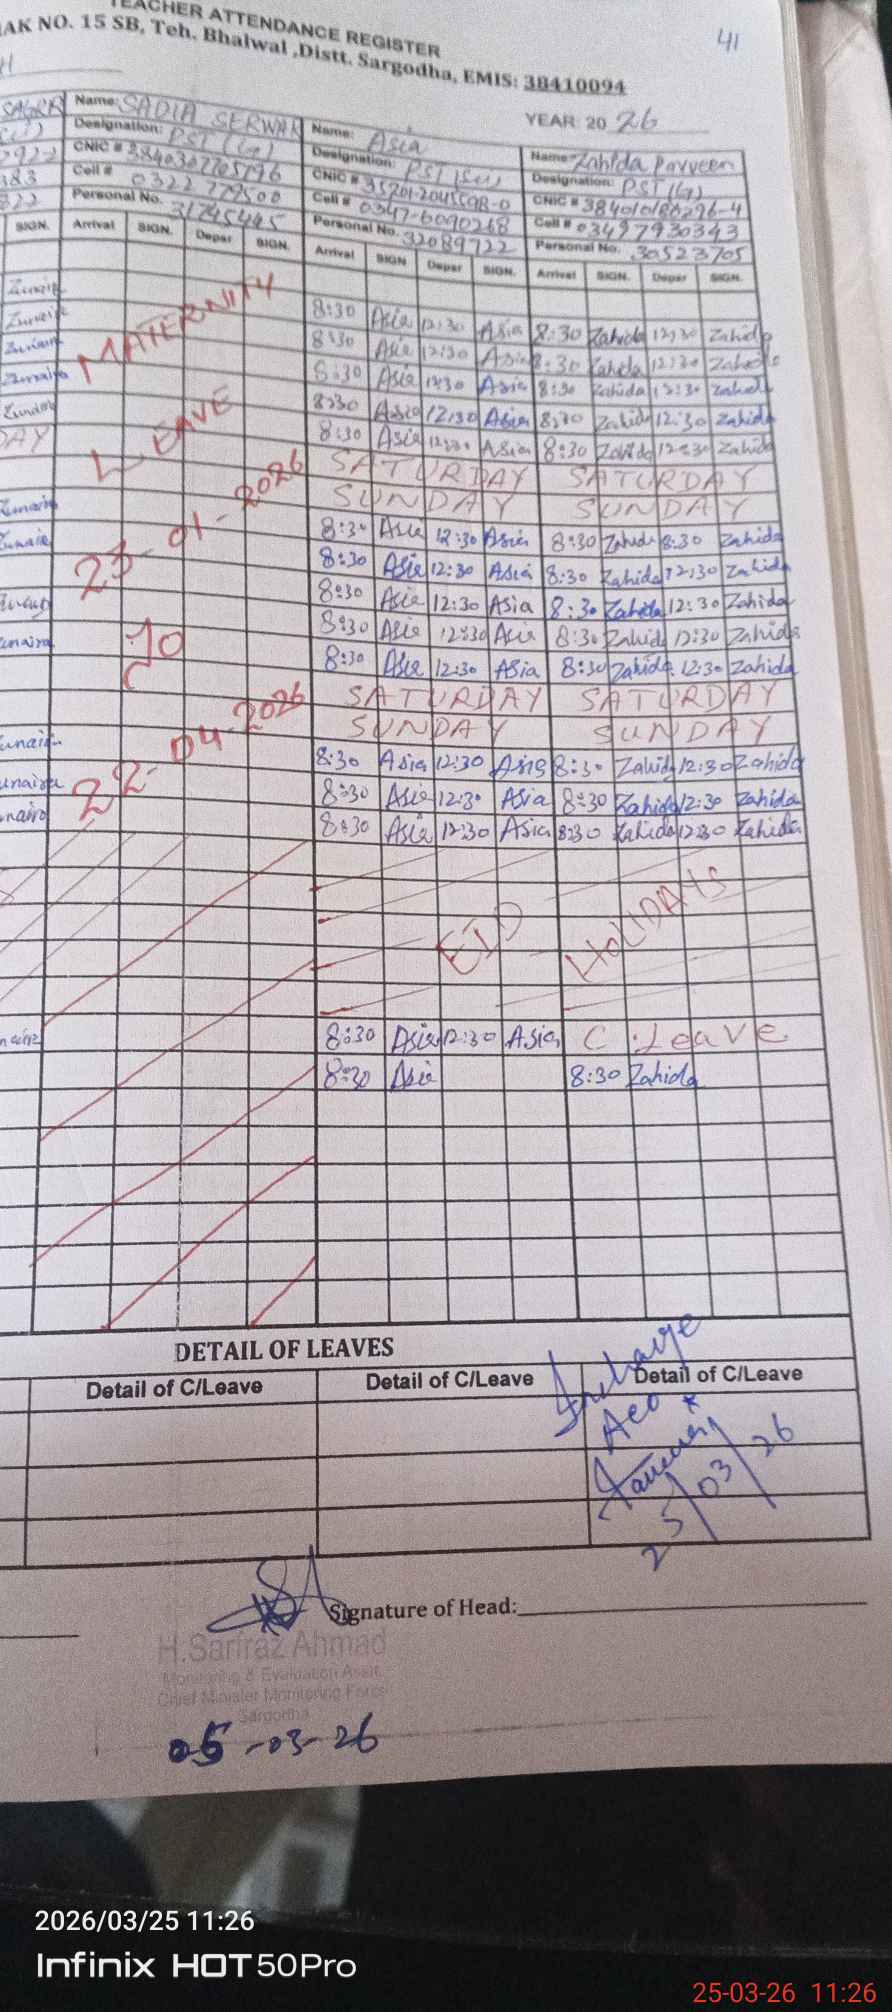 TEACHER ATTENDANCE REGISTER
AK NO. 15 SB, Teh. Bhalwal ,Distt. Sargodha, EMIS: 38410094
41
YEAR: 20 26
Name: SADIA SERWAR
Designation: PST
CNIC # 3840307705796
Cell # 0322 779500
Personal No. 31745445
Name: Asia
Designation: PST
CNIC # 35201-2045598-0
Cell # 0347-6090268
Personal No. 32089722
Name Zahida Parveen
Designation: PST
CNIC # 384010180296-4
Cell # 03497930343
Personal No. 30523705
SIGN. Arrival SIGN. Depar SIGN. Arrival SIGN Depar SIGN. Arrival SIGN. Depar SIGN.
MATERNITY
LEAVE
23-01-2026
To
22-04-2026
8:30 Asia 12:30 Asia 8:30 Zahida 12:30 Zahida
8:30 Asia 12:30 Asia 8:30 Zahida 12:30 Zahida
8:30 Asia 12:30 Asia 8:30 Zahida 12:30 Zahida
8:30 Asia 12:30 Asia 8:30 Zahida 12:30 Zahida
8:30 Asia 12:30 Asia 8:30 Zahida 12:30 Zahida
SATURDAY SATURDAY
SUNDAY SUNDAY
8:30 Asia 12:30 Asia 8:30 Zahida 8:30 Zahida
8:30 Asia 12:30 Asia 8:30 Zahida 12:30 Zahida
8:30 Asia 12:30 Asia 8:30 Zahida 12:30 Zahida
8:30 Asia 12:30 Asia 8:30 Zahida 12:30 Zahida
8:30 Asia 12:30 Asia 8:30 Zahida 12:30 Zahida
SATURDAY SATURDAY
SUNDAY SUNDAY
8:30 Asia 12:30 Asia 8:30 Zahida 12:30 Zahida
8:30 Asia 12:30 Asia 8:30 Zahida 12:30 Zahida
8:30 Asia 12:30 Asia 8:30 Zahida 12:30 Zahida
EID HOLIDAYS
8:30 Asia 12:30 Asia C.Leave
8:30 Asia 8:30 Zahida
DETAIL OF LEAVES
Detail of C/Leave Detail of C/Leave Detail of C/Leave
Incharge
AEO
25/03/26
Signature of Head:
H.Sarfraz Ahmad
Monitoring & Evaluation Asstt.
Chief Minister Monitoring Force
Sargodha
05-03-26
2026/03/25 11:26
Infinix HOT 50Pro
25-03-26 11:26